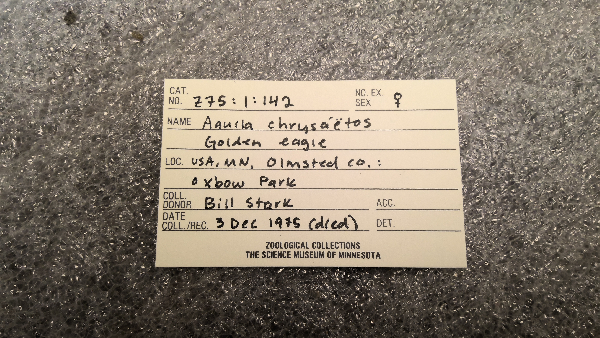 CAT. NO. Z75:1:142 NO. EX. SEX ♀
NAME Aquila chrysaëtos
Golden eagle
LOC. USA, MN, Olmsted co.:
Oxbow Park
COLL. DONOR Bill Stark ACC.
DATE COLL./REC. 3 Dec 1975 (died) DET.
ZOOLOGICAL COLLECTIONS
THE SCIENCE MUSEUM OF MINNESOTA